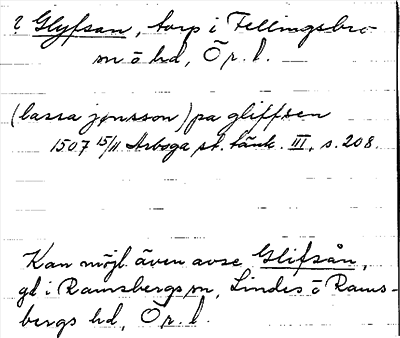 ? Glyfsan, torp i Fellingsbro
sn o hd, Ör. l.
(lassa jonsson) pa gliffsen
1507 15/11 Arboga st. tänk. III, s. 208.
Kan möjl. även avse Glifsån,
gd i Ramsbergs sn, Lindes o Rams-
bergs hd, Ör. l.